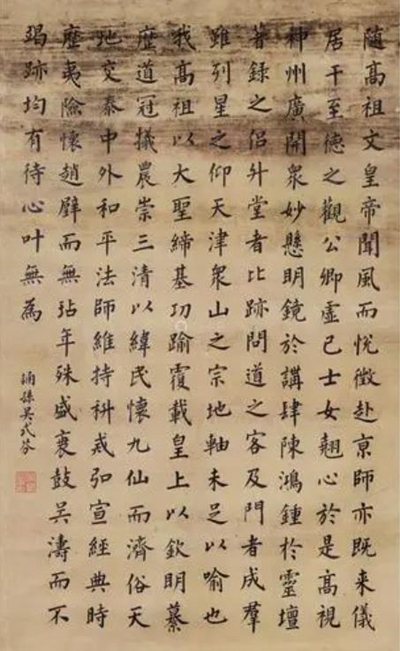 随高祖文皇帝聞風而悅徵赴京師亦既来儀
居于至德之觀公卿虚己士女翹心於是高視
神州廣開衆妙懸明鏡於講肆陳鴻鍾於靈壇
著録之侣升堂者比跡問道之客及門者成羣
雖列星之仰天津衆山之宗地軸未足以喻也
我髙祖以大聖締基功踰覆載皇上以欽明纂
歷道冠犧農崇三清以緯民懷九仙而濟俗天
地交泰中外和平法師維持科戒弘宣經典時
歷夷險懷趙璧而無玷年殊盛衰鼓吴濤而不
竭跡均有待心叶無為
誦孫吴式芬